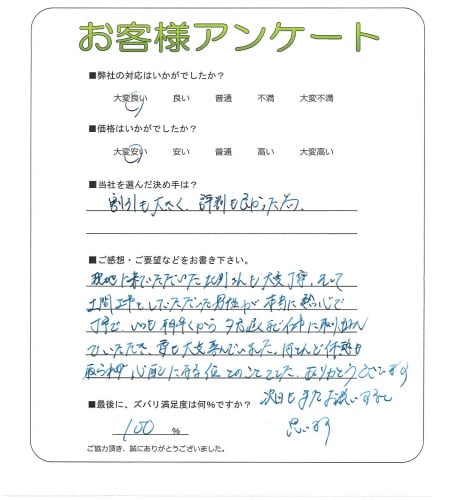 お客様アンケート
■弊社の対応はいかがでしたか？
大変良い 良い 普通 不満 大変不満
■価格はいかがでしたか？
大変安い 安い 普通 高い 大変高い
■当社を選んだ決め手は？
割引も大きく、評判も良かった為。
■ご感想・ご要望などをお書き下さい。
現地に来ていただいた さんも大変丁寧、そして
土間工事をしていただいた男性が本当に熱心で
丁寧で、いつも朝早くから夕方遅くまで仕事に取り組んで
いただき、妻も大変喜んでいました。ほとんど休憩も
取られず心配になる位とのことでした。ありがとうございます
次回もまたお願いすると
思います
■最後に、ズバリ満足度は何%ですか？
100 %
ご協力頂き、誠にありがとうございました。